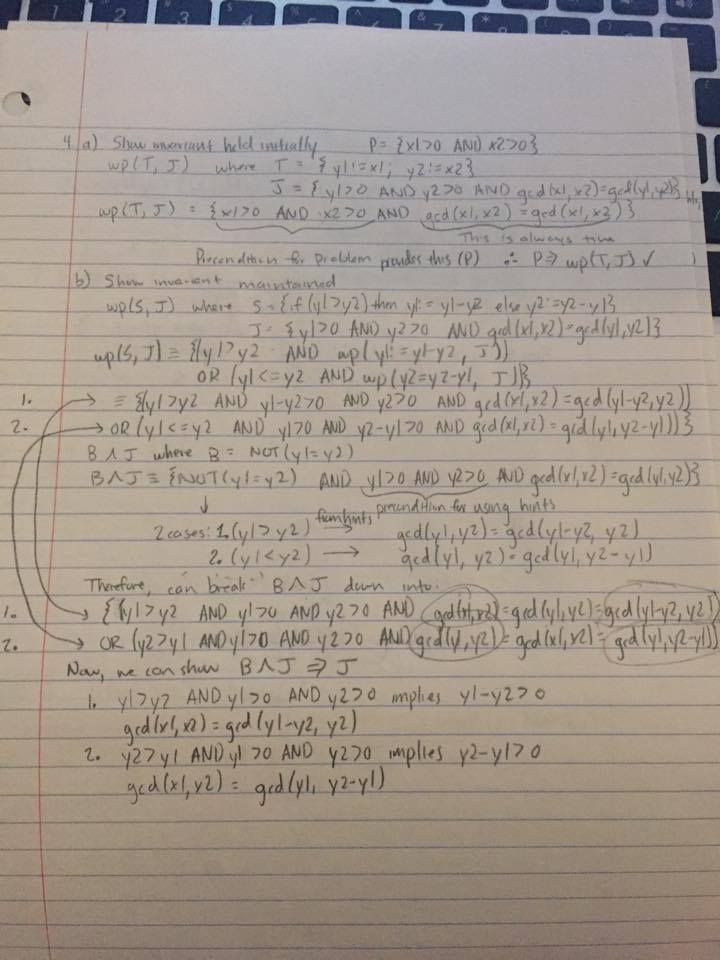 4 a) Show invariant held initially P = {x1>0 AND x2>0}
wp(T, J) where T = {y1:=x1; y2:=x2}
J = {y1>0 AND y2>0 AND gcd(x1,x2)=gcd(y1,y2)}
wp(T, J) = {x1>0 AND x2>0 AND gcd(x1,x2) = gcd(x1,x2)}
This is always true
Precondition for problem provides this (P) ∴ P ⇒ wp(T,J) ✓
b) Show invariant maintained
wp(S, J) where S = {if (y1>y2) then y1:= y1-y2 else y2:=y2-y1}
J = {y1>0 AND y2>0 AND gcd(x1,x2)=gcd(y1,y2)}
wp(S, J) ≡ {(y1>y2 AND wp(y1:=y1-y2, J))
OR (y1<=y2 AND wp(y2=y2-y1, J))}
1. ≡ {(y1>y2 AND y1-y2>0 AND y2>0 AND gcd(x1,x2)=gcd(y1-y2,y2))
2. OR (y1<=y2 AND y1>0 AND y2-y1>0 AND gcd(x1,x2)=gcd(y1,y2-y1))}
B∧J where B = NOT(y1=y2)
B∧J ≡ {NOT(y1=y2) AND y1>0 AND y2>0 AND gcd(x1,x2)=gcd(y1,y2)}
↓ precondition for using hints
2 cases: 1. (y1>y2) from hints → gcd(y1,y2) = gcd(y1-y2, y2)
2. (y1<y2) → gcd(y1, y2) = gcd(y1, y2-y1)
Therefore, can break B∧J down into:
1. {(y1>y2 AND y1>0 AND y2>0 AND gcd(x1,x2)=gcd(y1,y2)=gcd(y1-y2,y2))
2. OR (y2>y1 AND y1>0 AND y2>0 AND gcd(y1,y2) = gcd(x1,x2) = gcd(y1,y2-y1))}
Now, we can show B∧J ⇒ J
1. y1>y2 AND y1>0 AND y2>0 implies y1-y2>0
gcd(x1,x2) = gcd(y1-y2, y2)
2. y2>y1 AND y1>0 AND y2>0 implies y2-y1>0
gcd(x1,y2) = gcd(y1, y2-y1)